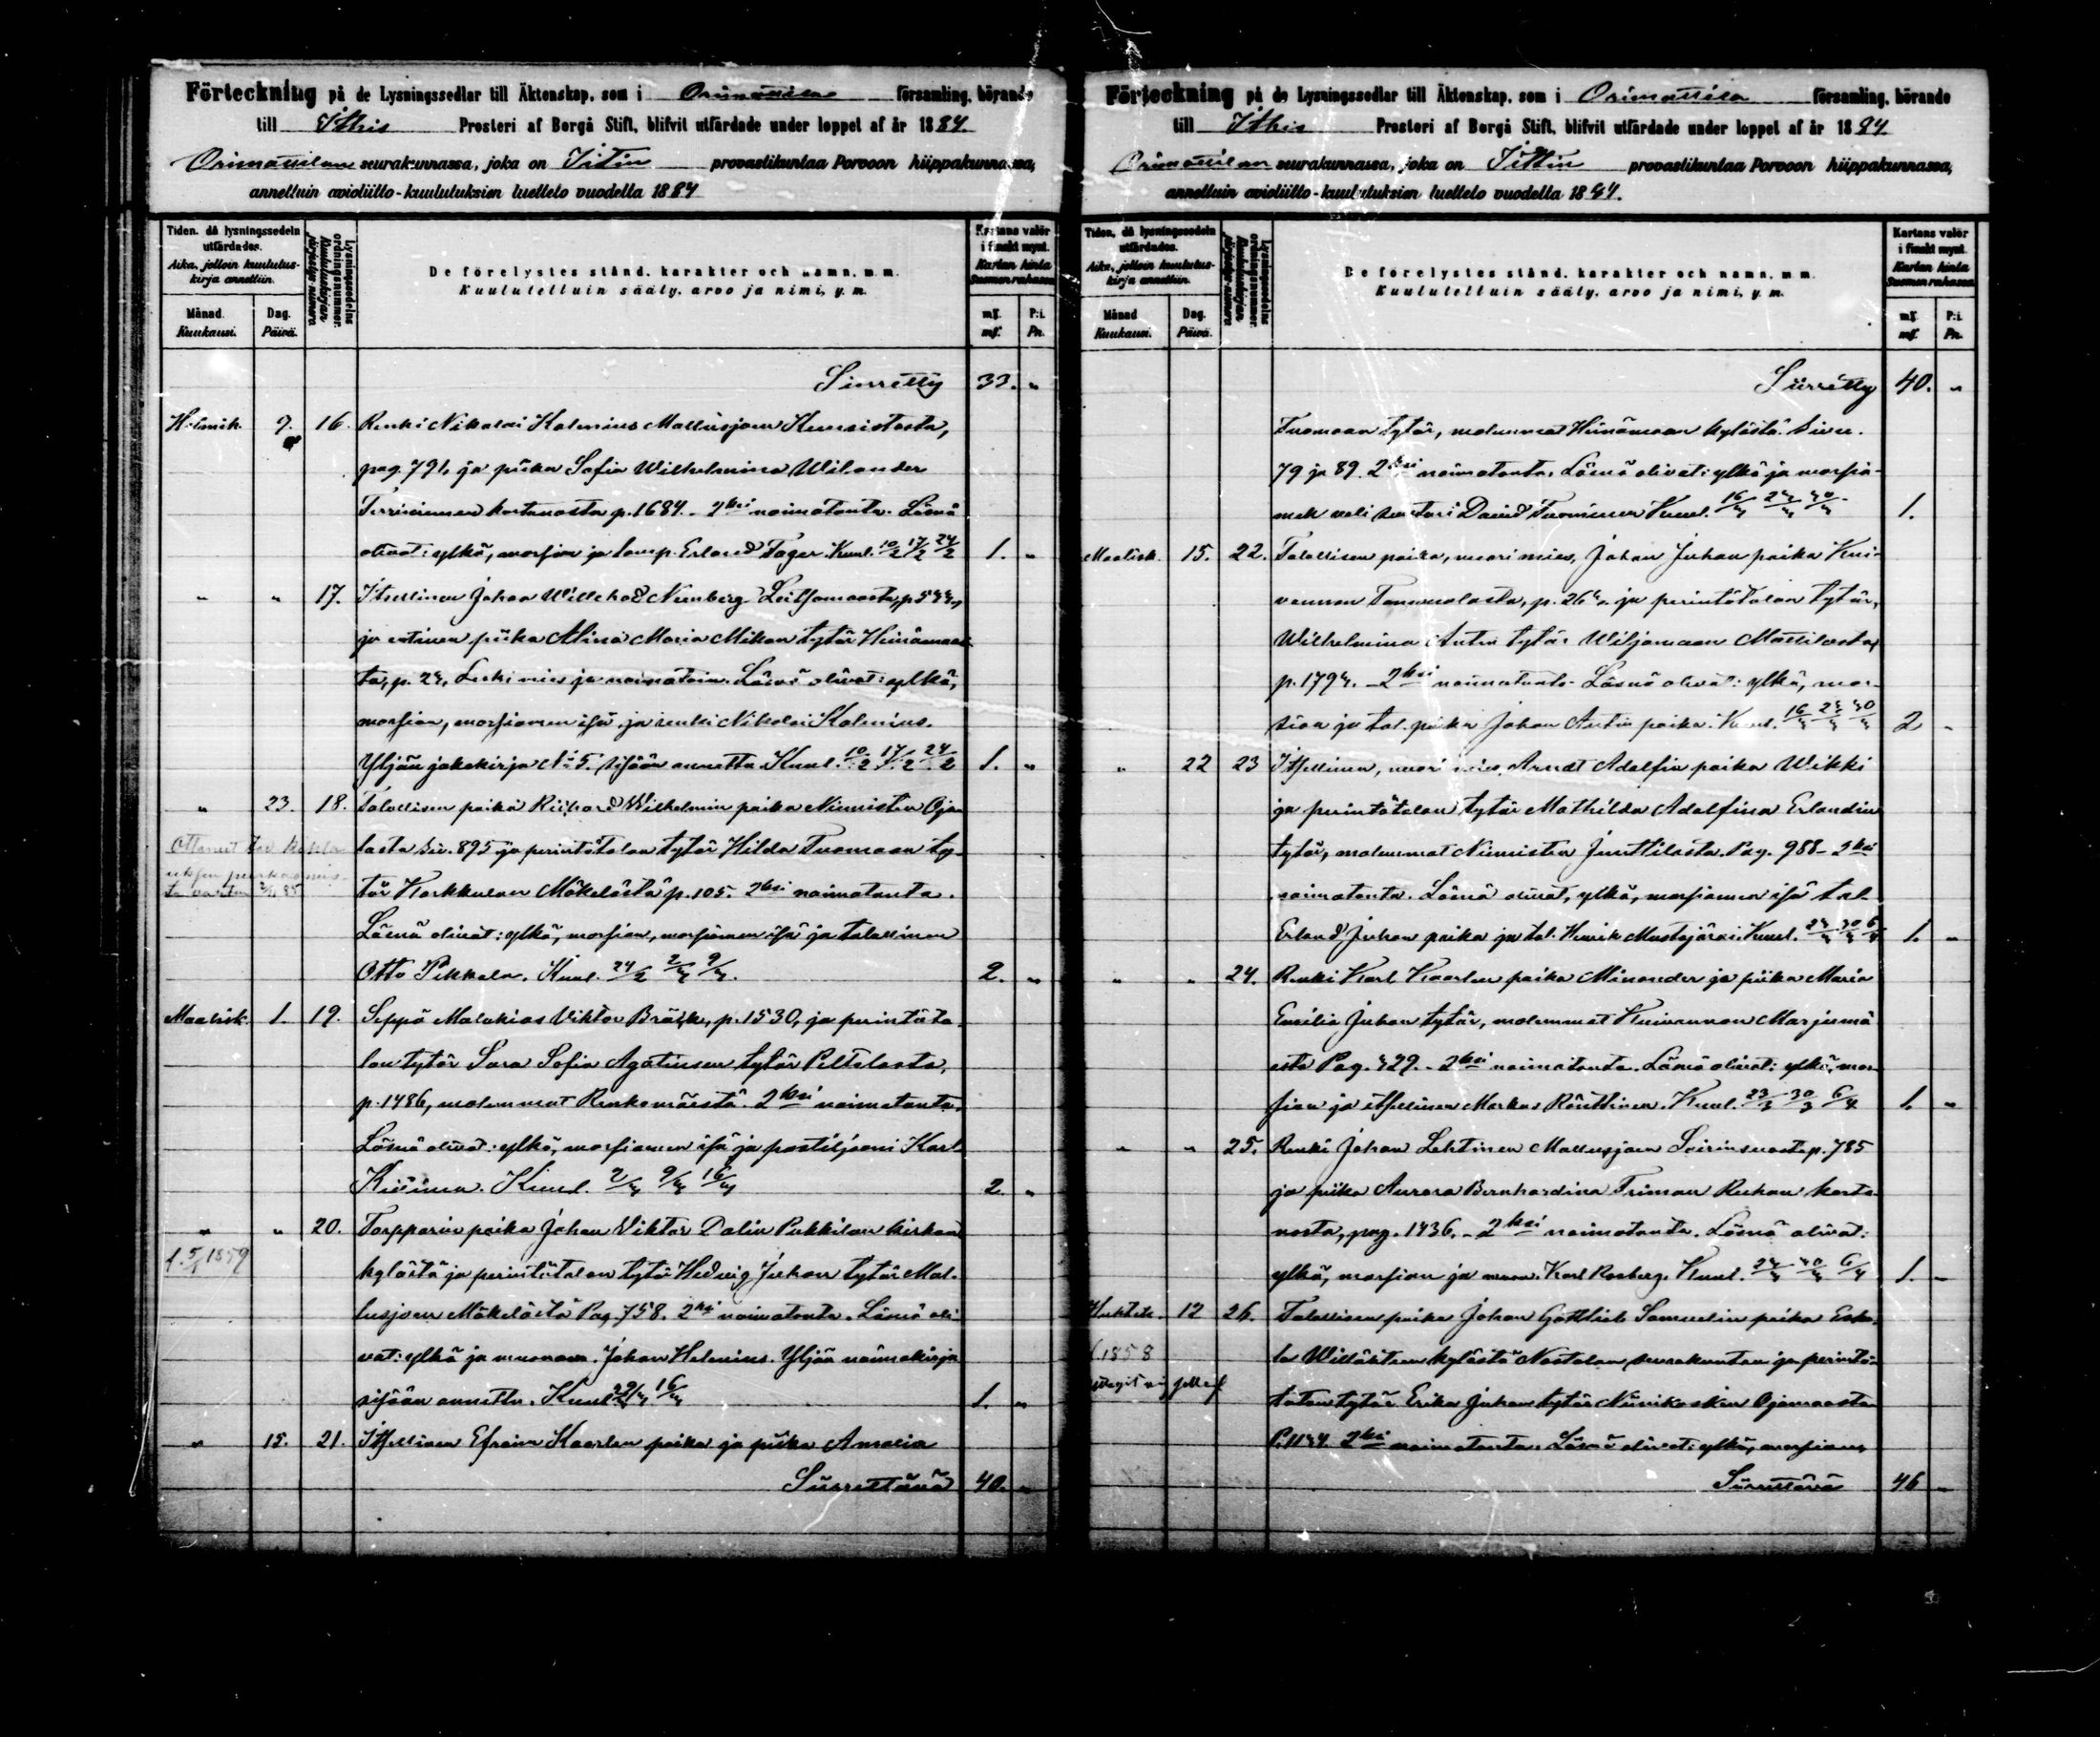 Förteckning på de Lysningssedlar till Äktenskap, som i Orimattila församling, hörande
till Ithis Prosteri af Borgå Stift, blifvit utfärdade under loppet af år 1884.
Orimattilan seurakunnassa, joka on Iitin provastikuntaa Porvoon hiippakunnassa,
annettuin avioliitto-kuulutuksien luettelo vuodella 1884
Tiden, då lysningssedeln utfärdades.
Aika, jolloin kuulutuskirja annettiin.
Månad. Kuukausi.
Dag. Päivä.
Lysningssedelns ordningsnummer.
Kuulutuskirjan järjestys-numero
De förelystes stånd, karakter och namn, m. m.
Kuulutettuin sääty, arvo ja nimi, y. m.
Kartans valör i finskt mynt.
Kartan hinta Suomen rahassa
mf. mf.
P:i. Pn.
Siirretty 33. "
Helmik. 9. 16. Renki Nikolai Kalenius Mallusjoen Kunsistosta,
pag. 791, ja piika Sofia Wilhelmina Wilander
Terriniemen kartanosta p. 1684. 2ksi naimatonta. Läsnä
olivat: ylkä, morsian ja lamp. Erland Fager. Kuul. 10/2 17/2 24/2 1. "
" " 17. Itsellinen Johan Willehad Nurnberg
ja entinen piika Alina Maria Mikon tytär Heinämaas-
ta, p. 23, Leskimies ja naimatoin. Läsnä olivat: ylkä,
morsian, morsiamen isä ja renki Nikolai Kalenius.
Yljän jakokirja No 5. sisään annettu. Kuul. 10/2 17/2 24/2 1. "
" 23. 18. Talollisen poika Richard Wilhelmin poika Niemistön Oja-
lasta siv. 895 ja perintötalon tytär Hilda Tuomaan ty-
tär Karkkulan Mäkelästä p. 105. 2ksi naimatonta.
Läsnä olivat: ylkä, morsian, morsiamen isä ja talollinen
Otto Pekkala. Kuul. 24/2 2/3 9/3. 2. "
Maalisk. 1. 19. Seppä Malakias Viktor Bräsk, p. 1530, ja perintöta-
lon tytär Sara Sofia Agatiusen tytär Peltolasta,
p. 1486, molemmat Renkomäestä. 2ksi naimatonta.
Läsnä olivat: ylkä, morsiamen isä ja postiljooni Karl
Kiiänen. Kuul. 2/3 9/3 16/3 2. "
" " 20. Torpparin poika Johan Viktor Dalin Pukkilan kirkon
f. 5/1 1859
kylästä ja perintötalon tytär Hedvig Juhon tytär Mal-
lusjoen Mäkelästä Pag. 758. 2ksi naimatonta. Läsnä oli-
vat: ylkä ja muonam. Johan Helenius. Yljän naimakirja
sisään annettu. Kuul. 2/3 9/3 16/3 1. "
" 15. 21. Itsellinen Efraim Kaarlen poika ja piika Amalia
Siirrettävä 40. "
Förteckning på de Lysningssedlar till Äktenskap, som i Orimattila församling, hörande
till Ithis Prosteri af Borgå Stift, blifvit utfärdade under loppet af år 1884
Orimattilan seurakunnassa, joka on Iittin provastikuntaa Porvoon hiippakunnassa,
annettuin avioliitto-kuulutuksien luettelo vuodella 1884.
Tiden, då lysningssedeln utfärdades.
Aika, jolloin kuulutuskirja annettiin.
Månad Kuukausi.
Dag. Päivä.
Lysningssedelns ordningsnummer.
Kuulutuskirjan järjestys-numero
De förelystes stånd, karakter och namn, m. m.
Kuulutettuin sääty, arvo ja nimi, y. m.
Kartans valör i finskt mynt.
Kartan hinta Suomen rahassa
mf. mf.
P:i. Pn.
Siirretty 40. "
Tuomaan tytär, molemmat Heinämaan kylästä. Sivu.
79 ja 89. 2ksi naimatonta. Läsnä olivat: ylkä ja morsia-
men veli suutari David Tuominen. Kuul. 16/3 23/3 30/3 1.
Maalisk. 15. 22. Talollisen poika, nuori mies, Johan Juhan poika Kui-
vannon Tommolasta, p. 263. ja perintötalon tytär,
Wilhelmina Antin tytär Wiljamaan Mattilasta,
p. 1793. 2ksi naimatonta. Läsnä olivat: ylkä, mor-
sian ja tal. poika Johan Antin poika. Kuul. 16/3 23/3 30/3 2 "
" 22 23 Itsellinen, nuori mies, Arndt Adolfin poika Wikki
ja perintötalon tytär Mathilda Adolfina Erlandin
tytär, molemmat Niemistön Junttilasta. Pag. 988. 2ksi
naimatonta. Läsnä olivat, ylkä, morsiamen isä tal.
Erland Juhan poika ja tal. Henrik Mustajärvi. Kuul. 23/3 30/3 6/4 1. "
" " 24. Renki Karl Kaarlen poika Minander ja piika Maria
Emilia Juhan tytär, molemmat Kuivannon Marjumä-
estä Pag. 329. 2ksi naimatonta. Läsnä olivat: ylkä, mor-
sian ja itsellinen Markus Könttinen. Kuul. 23/3 30/3 6/4 1. "
" " 25. Renki Johan Lehtinen Mallusjoen p. 785
ja piika Aurora Bernhardina Friman Ruhan karta-
nosta, pag. 1436. 2ksi naimatonta. Läsnä olivat:
ylkä, morsian ja Karl Rosberg. Kuul. 23/3 30/3 6/4 1. "
Huhtik. 12 26. Talollisen poika Johan Gottlieb Samuelin poika Esko-
1858
la Willähteen kylästä Nastolan seurakuntaa ja perintö-
talon tytär Erika Juhan tytär Niinikosken Ojamaasta
P. 1134 2ksi naimatonta. Läsnä olivat: ylkä, morsian,
Siirrettävä 46 "